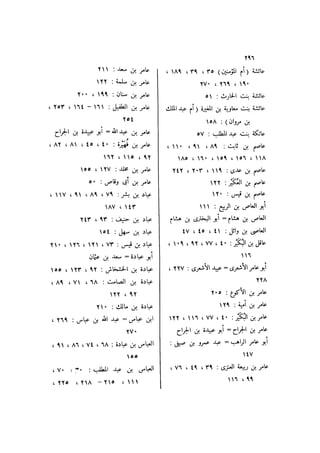 ٢٩٦
عائشة (أم المؤمنين) ٣٥ ، ٣٩ ، ١٨٩ ،
١٩٠ ، ٢٦٩ ، ٢٧٠
عائشة بنت الحارث : ٥١
عائشة بنت معاوية بن المغيرة (أم عبد الملك
بن مروان) : ١٥٨
عاتكة بنت عبد المطلب : ٥٧
عاصم بن ثابت : ٨٩ ، ٩١ ، ١١٠ ،
١١٨ ، ١٥٦ ، ١٥٩ ، ١٦٠ ، ١٨٥
عاصم بن عدى : ١١٩ ، ٢٠٣ ، ٢٤٢
عاصم بن العُكَيْر : ١٢٢
عاصم بن قيس : ١٢٠
أبو العاص بن الربيع : ١١١
العاص بن هشام = أبو البخترى بن هشام
العاصى بن وائل : ٤١ ، ٤٥ ، ٤٧
عاقل بن البُكَيْر : ٤٠ ، ٧٧ ، ٩٢ ، ١٠٩ ،
١١٦
أبو عامر الأشعرى = عبيد الأشعرى : ٢٢٧ ،
٢٢٨
عامر بن الأكوع : ٢٠٥
عامر بن أمية : ١٢٩
عامر بن البُكَيْر : ٤٠ ، ٧٧ ، ١١٦ ، ١٢٢
عامر بن الجراح = أبو عبيدة بن الجراح
أبو عامر الراهب = عبد عمرو بن صيفى :
١٤٧
عامر بن ربيعة العنزى : ٣٩ ، ٤٩ ، ٧٦ ،
٩٩ ، ١١٦
عامر بن سعد : ٢١١
عامر بن سلمة : ١٢٢
عامر بن سنان : ١٩٩ ، ٢٠٠
عامر بن الطفيل : ١٦١ – ١٦٤ ، ٢٥٣ ،
٢٥٤
عامر بن عبد الله = أبو عبيدة بن الجراح
عامر بن فُهَيْرة : ٤٠ ، ٤٥ ، ٨١ ، ٨٢ ،
٩٢ ، ١١٥ ، ١٦٢
عامر بن مخلد : ١٢٧ ، ١٥٥
عامر بن أبى وقاص : ٥٠
عباد بن بشر : ٧٩ ، ٨٩ ، ٩١ ، ١١٧ ،
١٤٣ ، ١٨٧
عباد بن حنيف : ٩٣ ، ٢٤٣
عباد بن سهل : ١٥٤
عباد بن قيس : ٧٣ ، ١٢١ ، ١٢٦ ، ٢١٠
أبو عبادة = سعد بن عثمان
عبادة بن الخشخاش : ٩٢ ، ١٢٣ ، ١٥٥
عبادة بن الصامت : ٦٨ ، ٧١ ، ٨٩ ،
٩٢ ، ١٢٢
عبادة بن مالك : ٢١٠
ابن عباس = عبد الله بن عباس : ٢٦٩ ،
٢٧٠
العباس بن عبادة : ٦٨ ، ٧٤ ، ٨٦ ، ٩١ ،
١٥٥
العباس بن عبد المطلب : ٣٠ ، ٧٠ ،
١١١ ، ٢١٥ – ٢١٨ ، ٢٢٥ ،